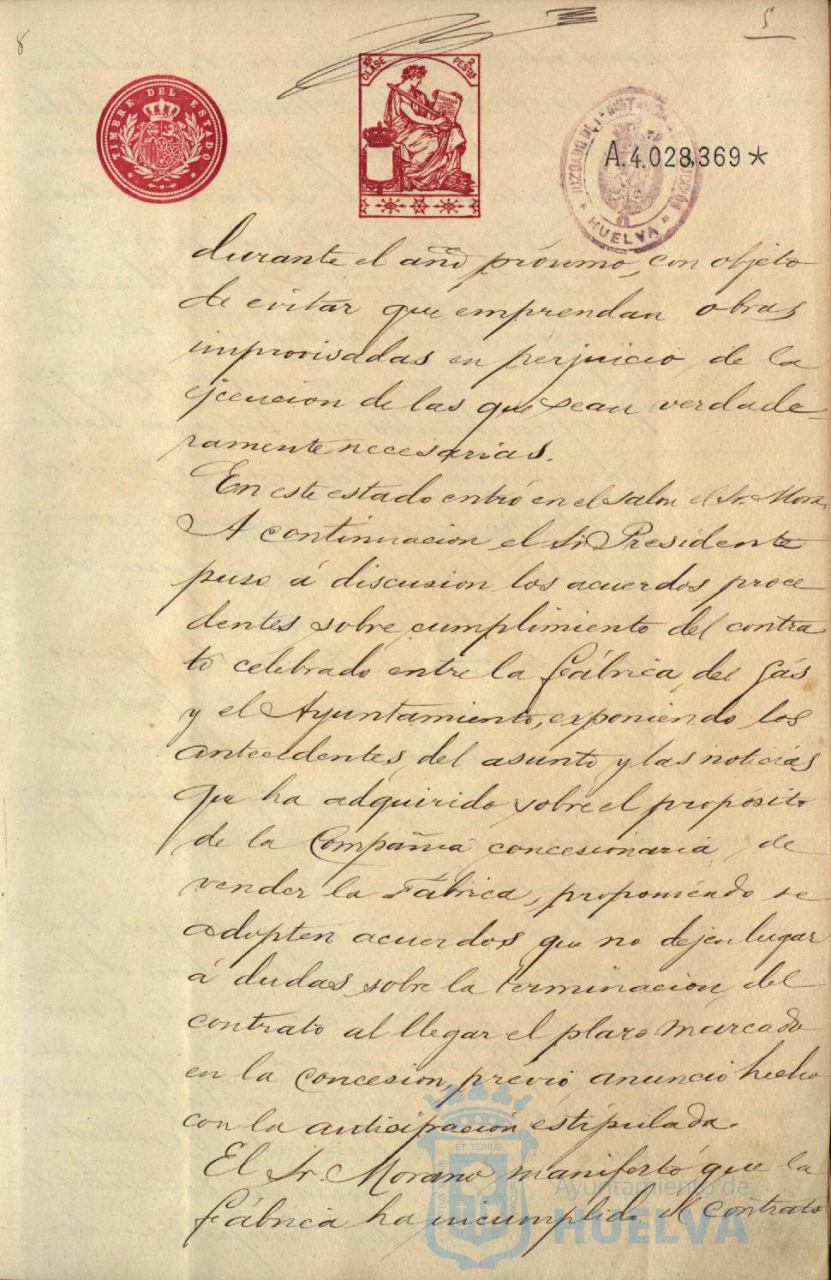 8
5
TIMBRE DEL ESTADO
10ª CLASE 2 PESTAS
JUZGADO DE 1ª INSTANCIA
HUELVA
A.4.028,369*
durante el año próximo, con objeto
de evitar que emprendan obras
improvisadas en perjuicio de la
ejecucion de las que sean verdade-
ramente necesarias.
En este estado entró en el salon el Sr. Mora.
A continuacion el Sr. Presidente
puso á discusion los acuerdos proce
dentes sobre cumplimiento del contra
to celebrado entre la fábrica del Gás
y el Ayuntamiento, exponiendo los
antecedentes del asunto y las noticias
que ha adquirido sobre el propósito
de la Compañia concesionaria de
vender la Fabrica, proponiendo se
adopten acuerdos que no dejen lugar
á dudas sobre la terminacion del
contrato al llegar el plazo marcado
en la concesion, previo anuncio hecho
con la anticipación estipulada.
El Sr. Morano manifestó que la
fábrica ha incumplido el contrato
ET TERRAE
Ayuntamiento de
HUELVA